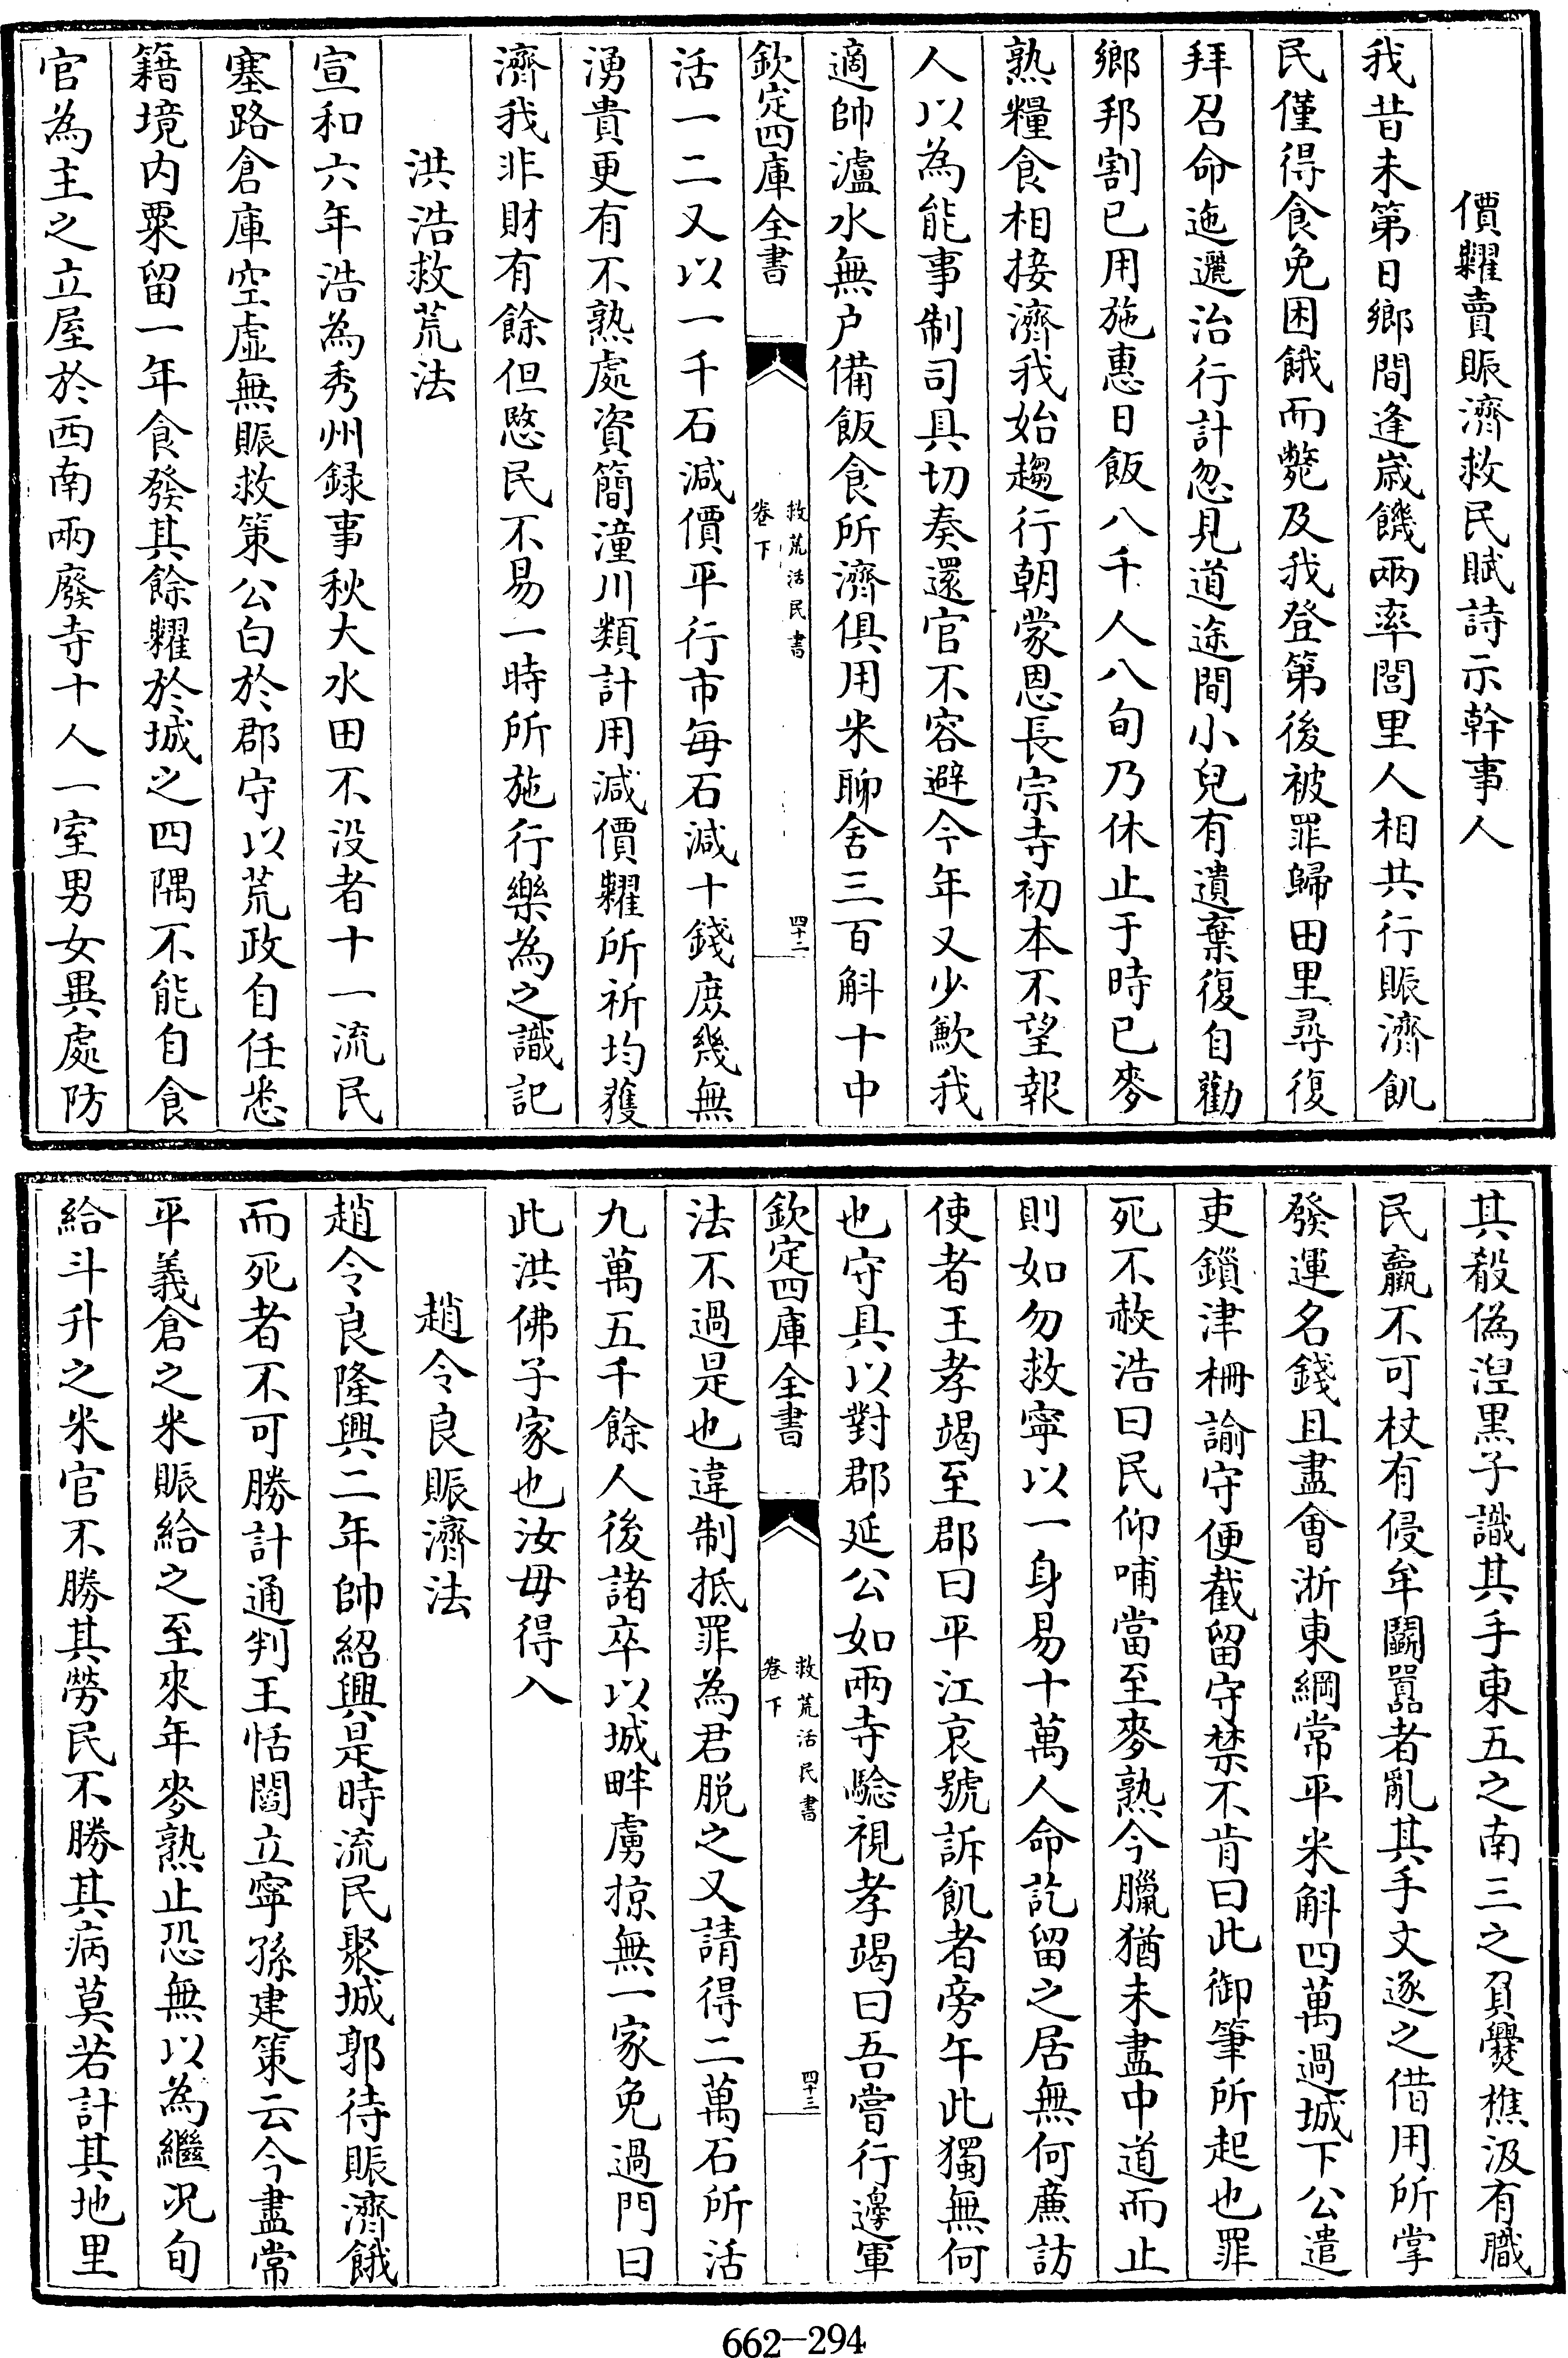 價糶賣賑濟救民賦詩示幹事人
我昔未第日鄉間逢嵗饑兩率閭里人相共行賑濟飢
民僅得食免困餓而斃及我登第後被罪歸田里尋復
拜召命迤邐治行計忽見道途間小兒有遺棄復自勸
鄉邦割已用施惠日飯八千人八旬乃休止于時已麥
熟糧食相接濟我始趨行朝蒙恩長宗寺初本不望報
人以為能事制司具切奏還官不容避今年又少歉我
適帥瀘水無户備飯食所濟俱用米聊舍三百斛十中
欽定四庫全書
救荒活民書
卷下
四十二
活一二又以一千石減價平行市每石減十錢庶幾無
湧貴更有不熟處資簡潼川類計用減價糶所祈均獲
濟我非財有餘但愍民不易一時所施行樂為之識記
洪浩救荒法
宣和六年浩為秀州録事秋大水田不没者十一流民
塞路倉庫空虛無賑救策公白於郡守以荒政自任悉
籍境内粟留一年食發其餘糶於城之四隅不能自食
官為主之立屋於西南兩廢寺十人一室男女異處防
其殽偽涅黑子識其手東五之南三之負爨樵汲有職
民羸不可杖有侵牟鬬囂者亂其手文逐之借用所掌
發運名錢且盡會浙東綱常平米斛四萬過城下公遣
吏鎖津柵諭守便截留守禁不肯曰此御筆所起也罪
死不赦浩曰民仰哺當至麥熟今臘猶未盡中道而止
則如勿救寧以一身易十萬人命訖留之居無何亷訪
使者王孝竭至郡曰平江哀號訴飢者旁午此獨無何
也守具以對郡延公如兩寺驗視孝竭曰吾嘗行邊軍
欽定四庫全書
救荒活民書
卷下
四十三
法不過是也違制抵罪為君脱之又請得二萬石所活
九萬五千餘人後諸卒以城畔虜掠無一家免過門曰
此洪佛子家也汝毋得入
趙令良賑濟法
趙令良隆興二年帥紹興是時流民聚城郭待賑濟餓
而死者不可勝計通判王恬閻立寧孫建策云今盡常
平義倉之米賑給之至來年麥熟止恐無以為繼况旬
給斗升之米官不勝其勞民不勝其病莫若計其地里
662-294